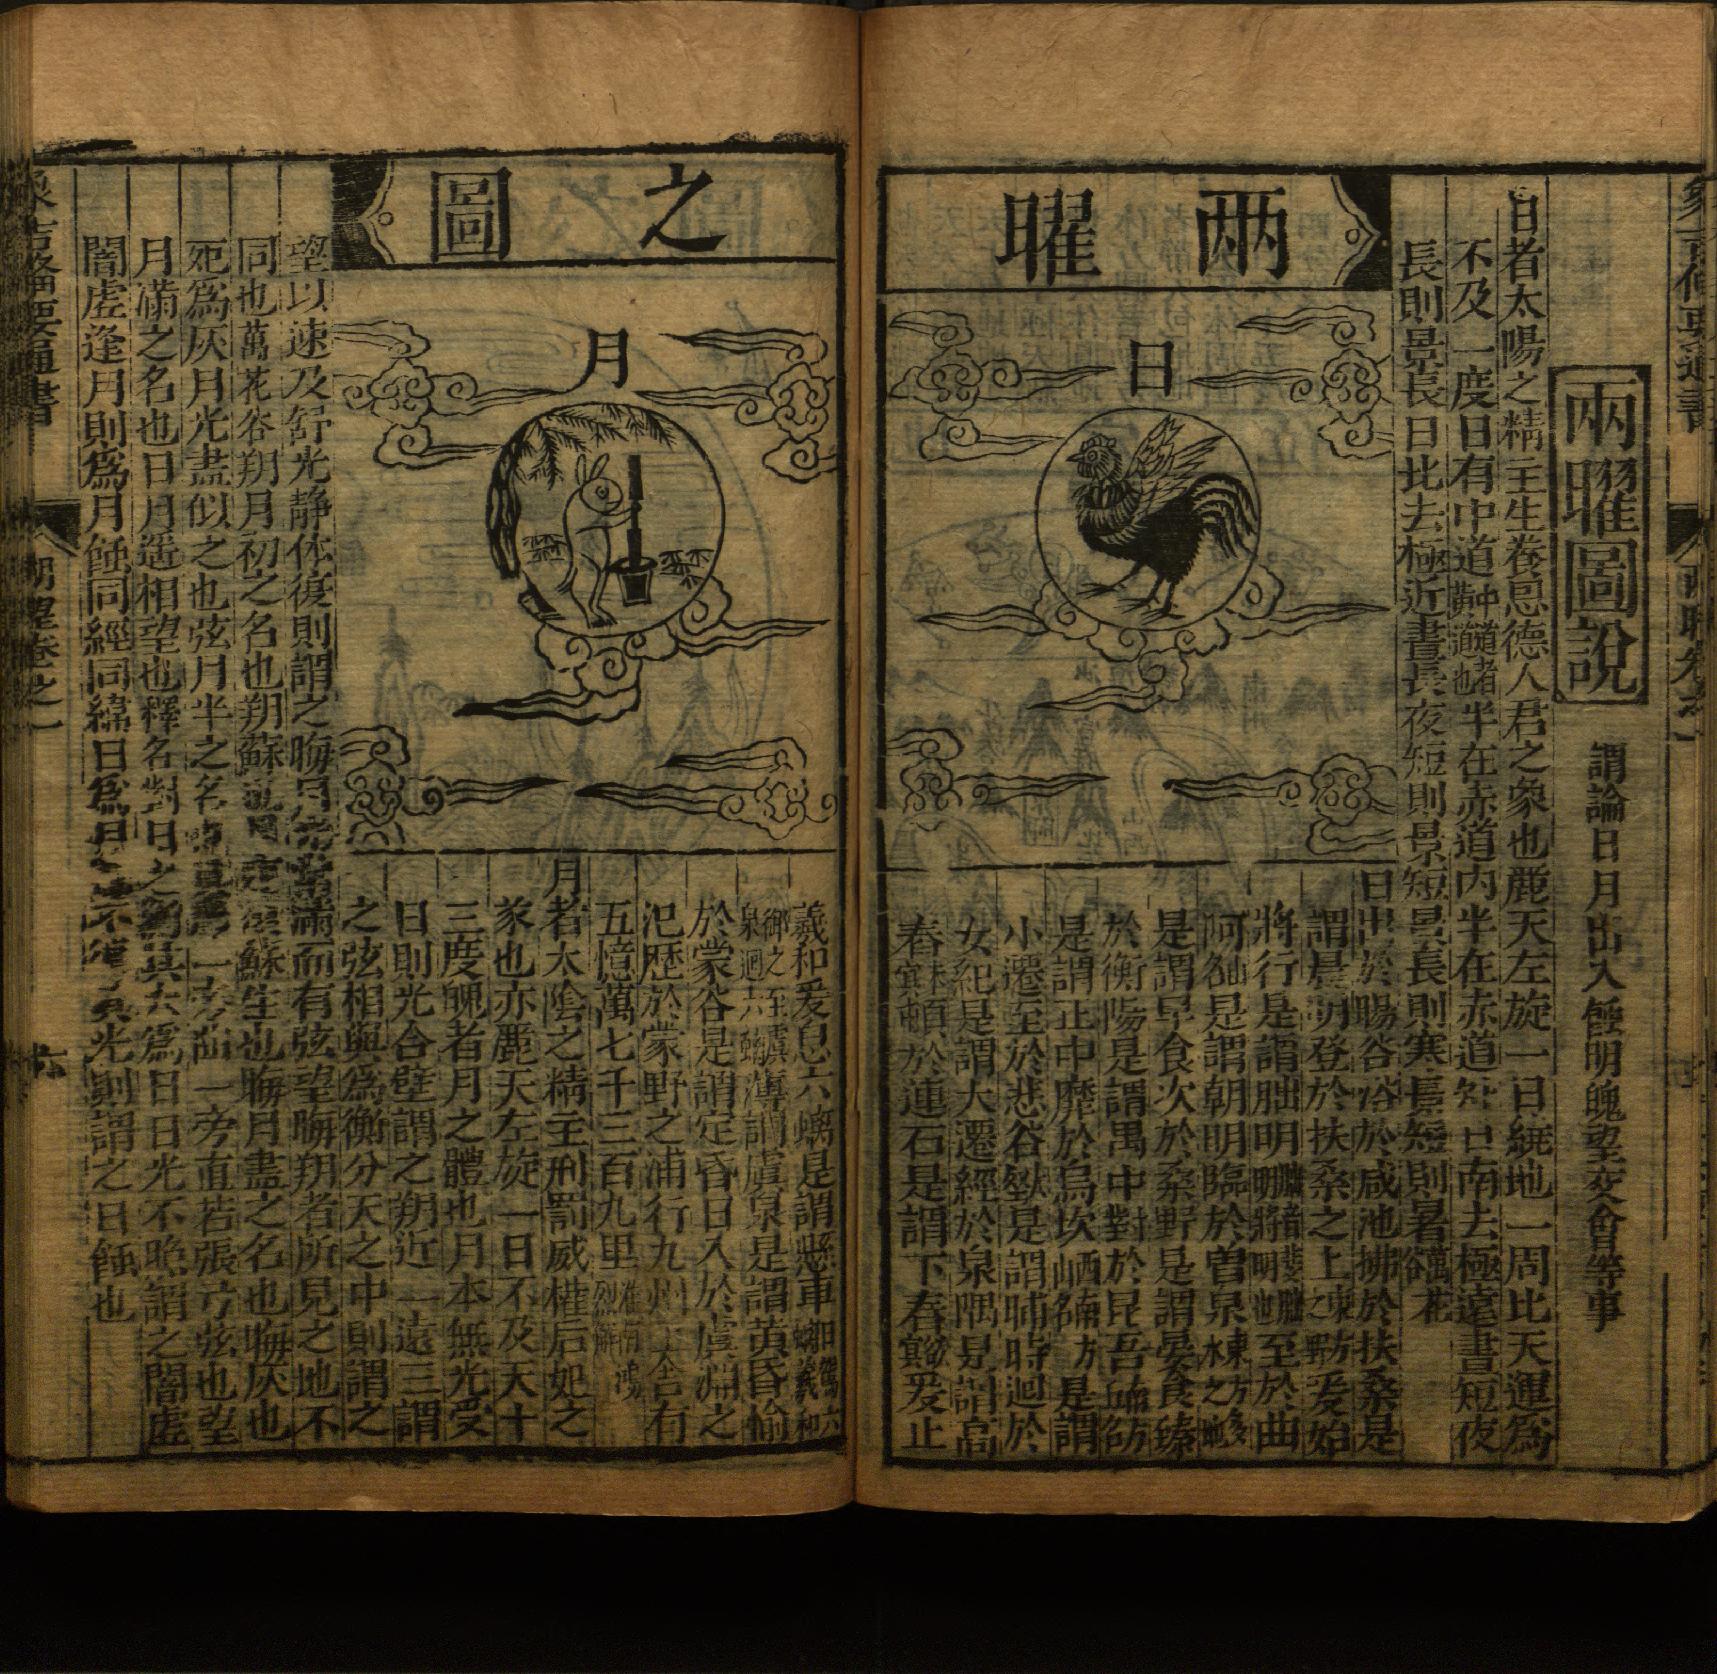 兩曜圖說
謂論日月出入蝕明魄望交會等事
日者太陽之精主生養恩德人君之象也麗天左旋一日繞地一周比天運爲
不及一度日有中道中道者黃道也半在赤道內半在赤道外日南去極遠晝短夜
長則景長日北去極近晝長夜短則景短景長則寒景短則暑萬花谷
兩曜
日
日出於暘谷浴於咸池拂於扶桑是
謂晨明登於扶桑之上東方之野爰始
將行是謂朏明朏音斐朏明將明也至於曲
阿是謂朝明臨於曾泉東方多水之地
是謂早食次於桑野是謂晏食臻
於衡陽是謂禺中對於昆吾
是謂正中靡於鳥次西南方是謂
小遷至於悲谷是謂晡時迴於
女紀是謂大遷經於泉隅是謂高
舂頓於連石是謂下舂爰止
之圖
月
羲和爰息六螭是謂懸車日駕六螭羲和
御之至虞泉迴六螭薄謂虞泉是謂黃昏淪
於蒙谷是謂定昏日入於虞淵之
汜歷於蒙野之浦行九州七舍有
五億萬七千三百九里淮南鴻烈解
月者太陰之精主刑罰威權后妃之
象也亦麗天左旋一日不及天十
三度魄者月之體也月本無光受
日則光合璧謂之朔近一遠三謂
之弦相與爲衡分天之中則謂之
望以速及舒光靜体復則謂之晦月常滿而有弦望晦朔者所見之地不
同也萬花谷朔月初之名也朔蘇也月死復蘇生也晦月盡之名也晦灰也
死爲灰月光盡似之也弦月半之名一旁曲一旁直若張弓弦也望
月滿之名也日月遙相望也釋名對日之衝其大爲日日光不照謂之闇虛
闇虛逢月則爲月蝕同經同緯日爲月光則謂之日蝕也